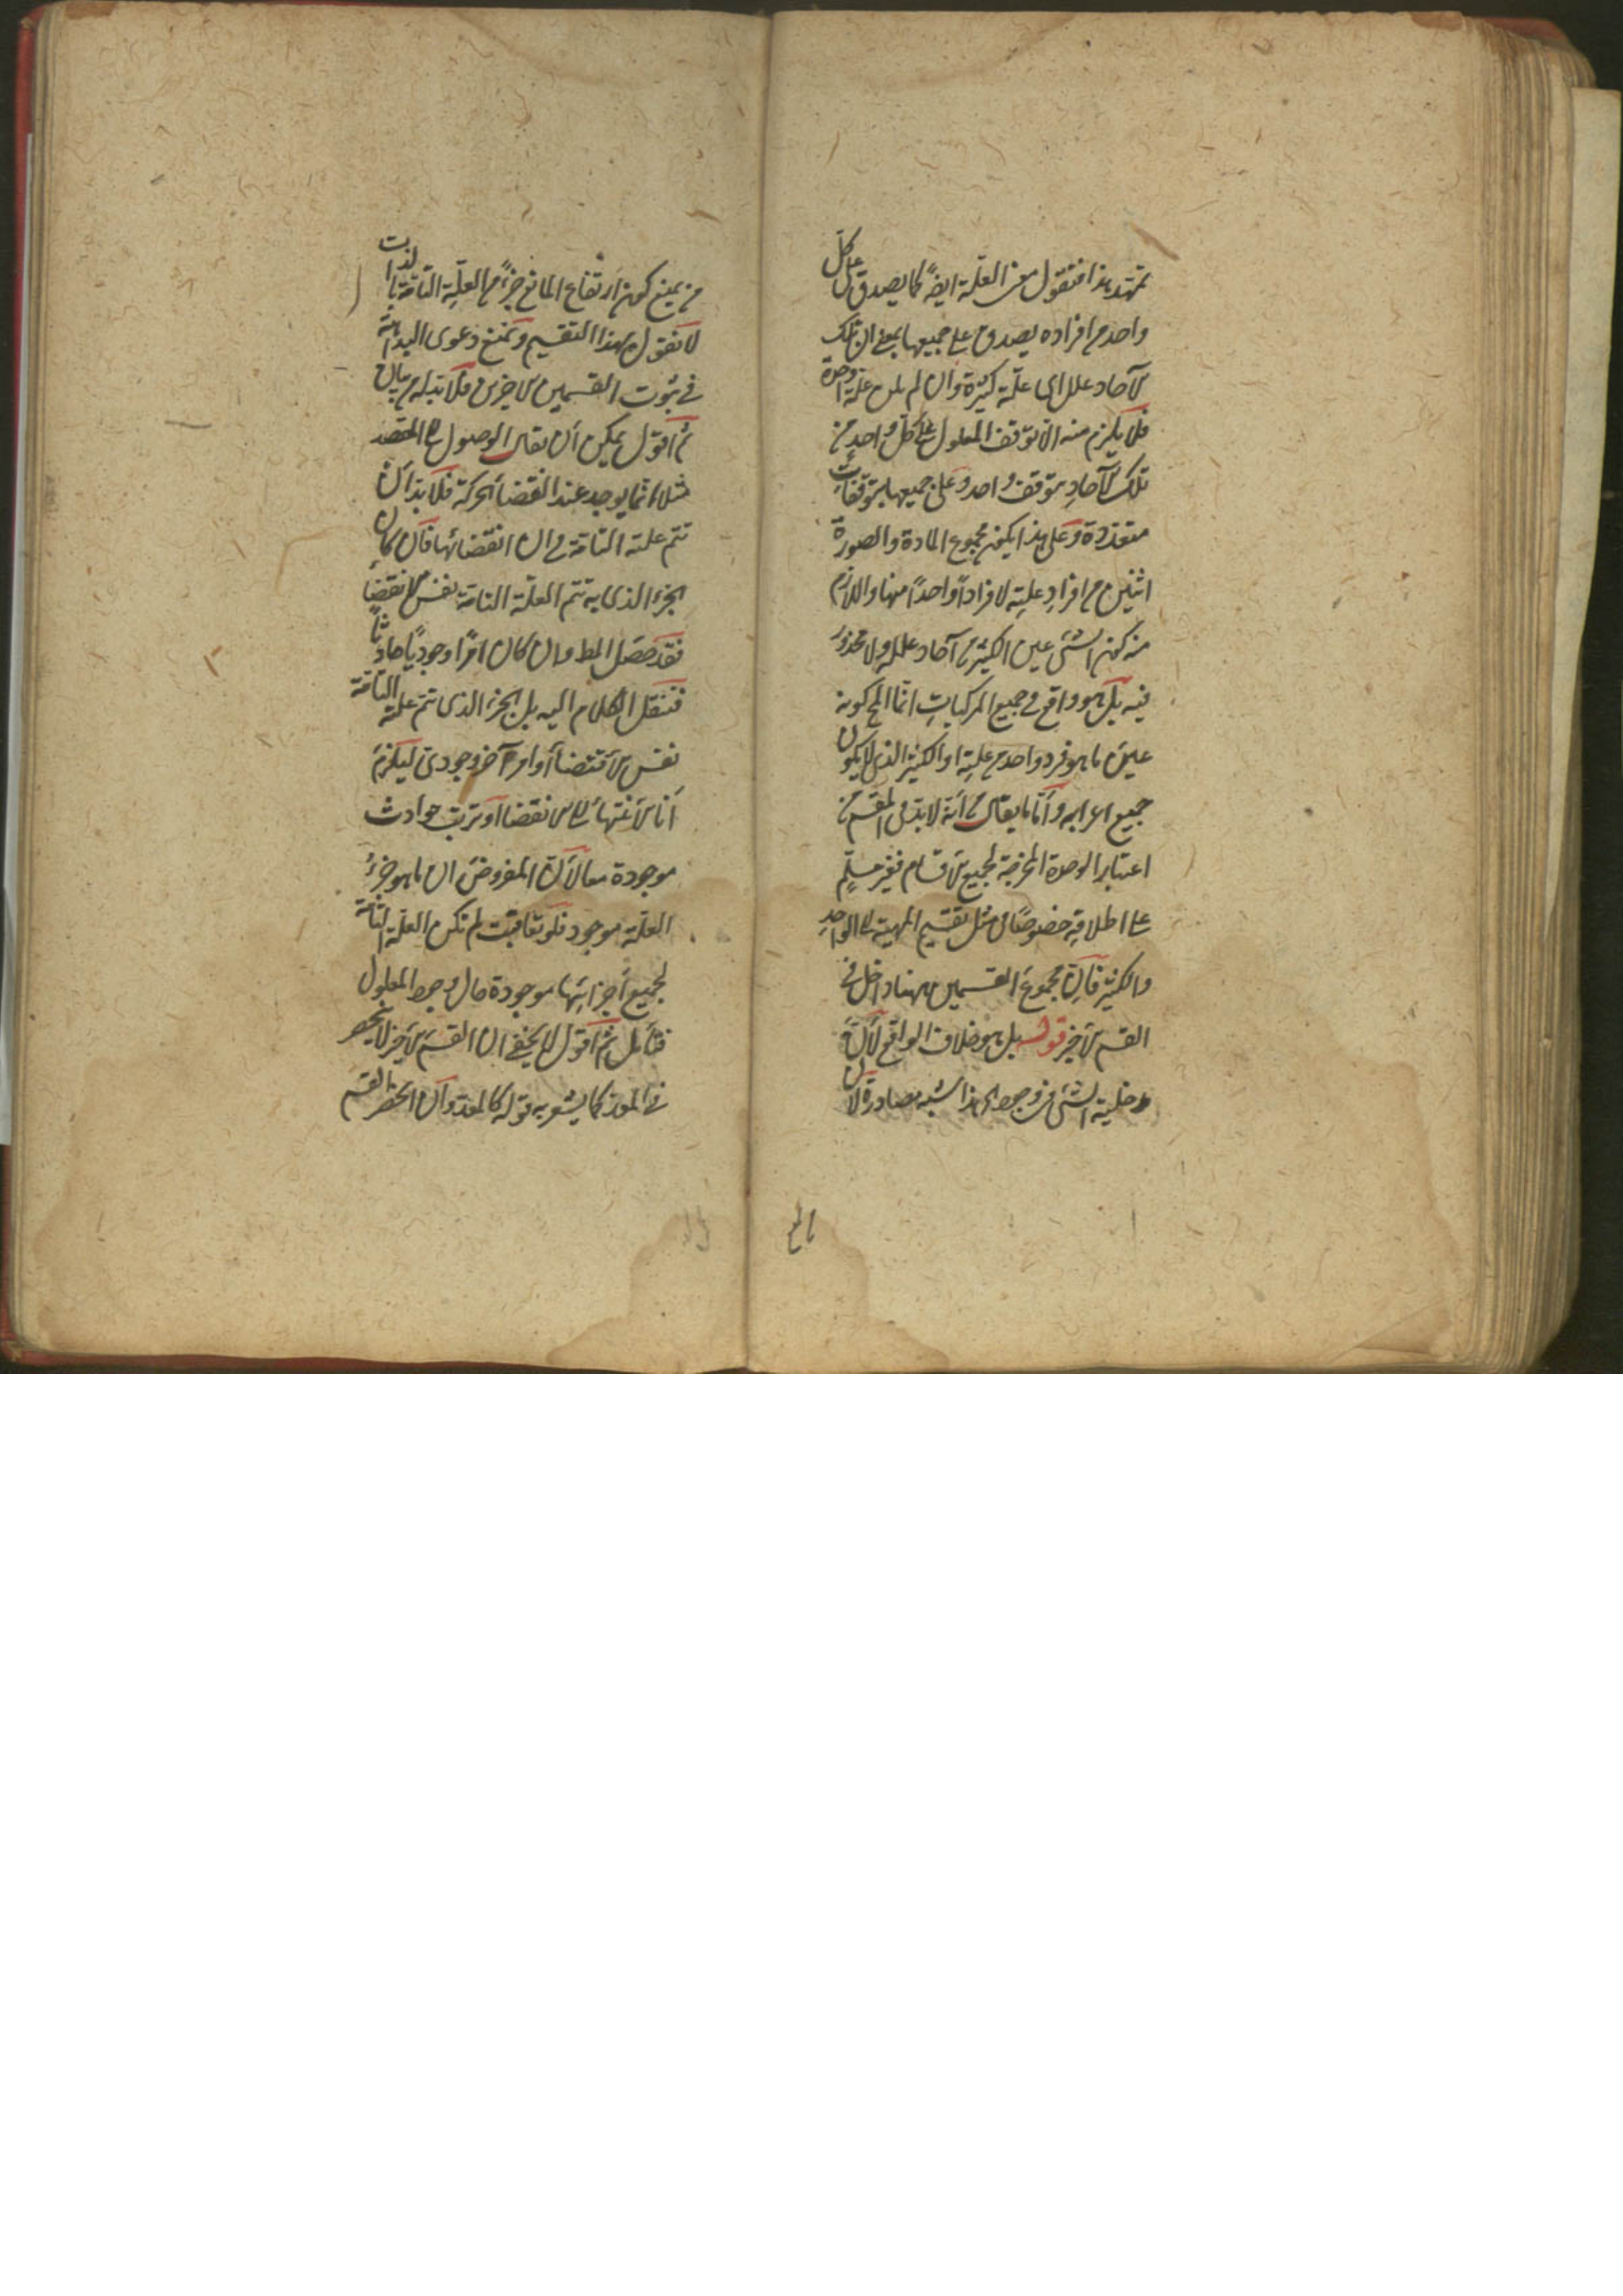 تمهد هذا فنقول معنى العلة ايضً كما يصدق على كل
واحد من افراده يصدق على جميعها بمعنى ان تلك
الآحاد علل اى علة كثيرة وان لم يكن علة واحدة
فلا يلزم منه الا توقف المعلول على كل واحد من
تلك الآحاد بتوقف واحد وعلى جميعها بتوقفات
متعددة وعلى هذا يكون مجموع المادة والصورة
اثنين من افراد علية لا فرادًا واحدًا منها واللازم
منه كون الشئ عين الكثير من آحاد علله ولا محذور
فيه بل هو واقع فى جميع المركبات انما المح كونه
عين ما هو فرد واحد من علته او الكثير الذى لا يكون
جميع اجزائه وأما ما يقال من أنه لا بد فى المقسم من
اعتبار الوحدة المخرجة لجميع الاقسام فغير مسلم
على اطلاقه خصوصًا فى مثل تقسيم المهية الى الواحد
والكثير فان مجموع القسمين ههنا داخل فى
القسم الاخير قوله بل هو خلاف الواقع لأن
مدخلية الشئ فى وجود هذا شبه مصادرة لان
من يمنع كون ارتفاع المانع جزءً من العلة التامة بالذات
لا يقول بهذا التقسيم ويمنع دعوى البداهة
فى ثبوت القسمين الاخرين فلا بد له من بيان
ثم اقول يمكن أن يقال الوصول الى المقصد
مثلا انما يوجد عند انقضاء الحركة فلا بد ان
تتم علته التامة فى ان انقضائها فان كان
الجزء الذى به تتم العلة التامة نفس الانقضاء
فقد حصل المط وان كان امرًا وجوديًا حادثًا
فننقل الكلام اليه بل الجزء الذى تتم علته التامة
نفس الاقتضاء أو امر آخر وجودى ليلزم
أما الانتهاء الى الانقضاء او ترتب حوادث
موجودة معا لأن المفروض ان ما هو جزء
العلة موجود فلو تعاقبت لم تكن العلة التامة
لجميع أجزائها موجودة حال وجود المعلول
فتأمل ثم اقول لا يخفى ان القسم الاخير لا ينحصر
فى المعد كما يشعر به قوله كالمعد وان انحصر القسم